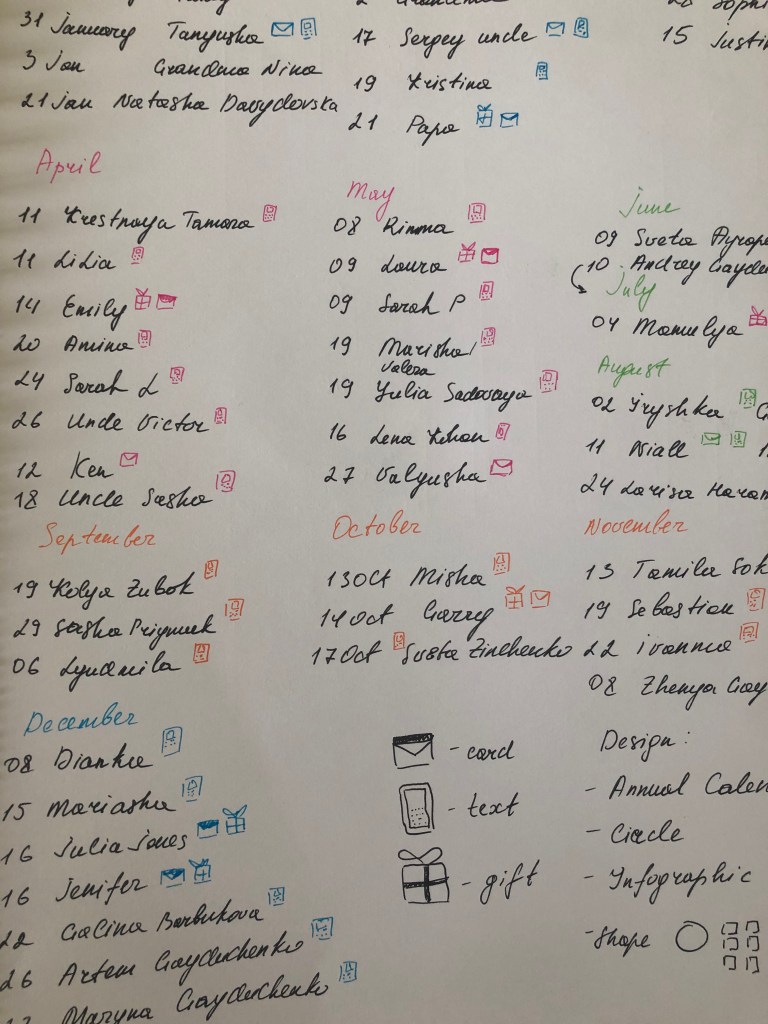 31 January Tanyusha
3 Jan Grandma Nina
21 Jan Natasha Davydovska
17 Sergey uncle
19 Kristina
21 Papa
15 Justin
April
11 Krestnaya Tamara
11 Lilia
14 Emily
20 Amina
24 Sarah L
26 Uncle Victor
12 Ken
18 Uncle Sasha
May
08 Rimma
09 Laura
09 Sarah P
19 Marisha/
Valera
19 Yulia Sadovaya
16 Lena Kohan
27 Valyusha
June
09 Sveta
10 Andrey
July
04 Mamulya
August
02 Iryshka
11 Niall
24 Larisa
September
19 Kolya Zubok
29 Sasha
06 Lyudmila
October
13 Oct Misha
14 Oct Garry
17 Oct Sveta Zinchenko
November
13 Tamila
19 Sebastian
22 Ivanna
08 Zhenya
December
08 Dianka
15 Mariasha
16 Julia Jones
16 Jenifer
22 Galina Barbukova
26 Artem Gayduchenko
Maryna Gayduchenko
- card
- text
- gift
Design:
- Annual
- Circle
- Infographic
- Shape